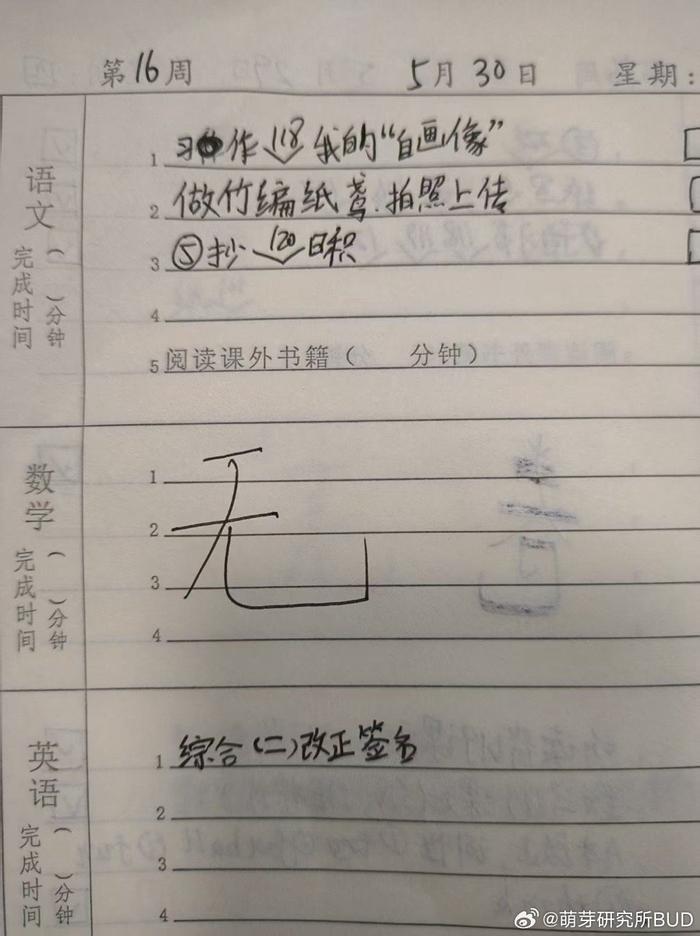 第16周 5月30日 星期:
语文
完成时间 ( )分钟
1 习作 118 我的“自画像”
2 做竹编纸鸢.拍照上传
3 ⑤抄 120 日积
4
5 阅读课外书籍( 分钟)
数学
完成时间 ( )分钟
1
2
3
4
无
英语
完成时间 ( )分钟
1 综合(二)改正签名
2
3
4
@萌芽研究所BUD